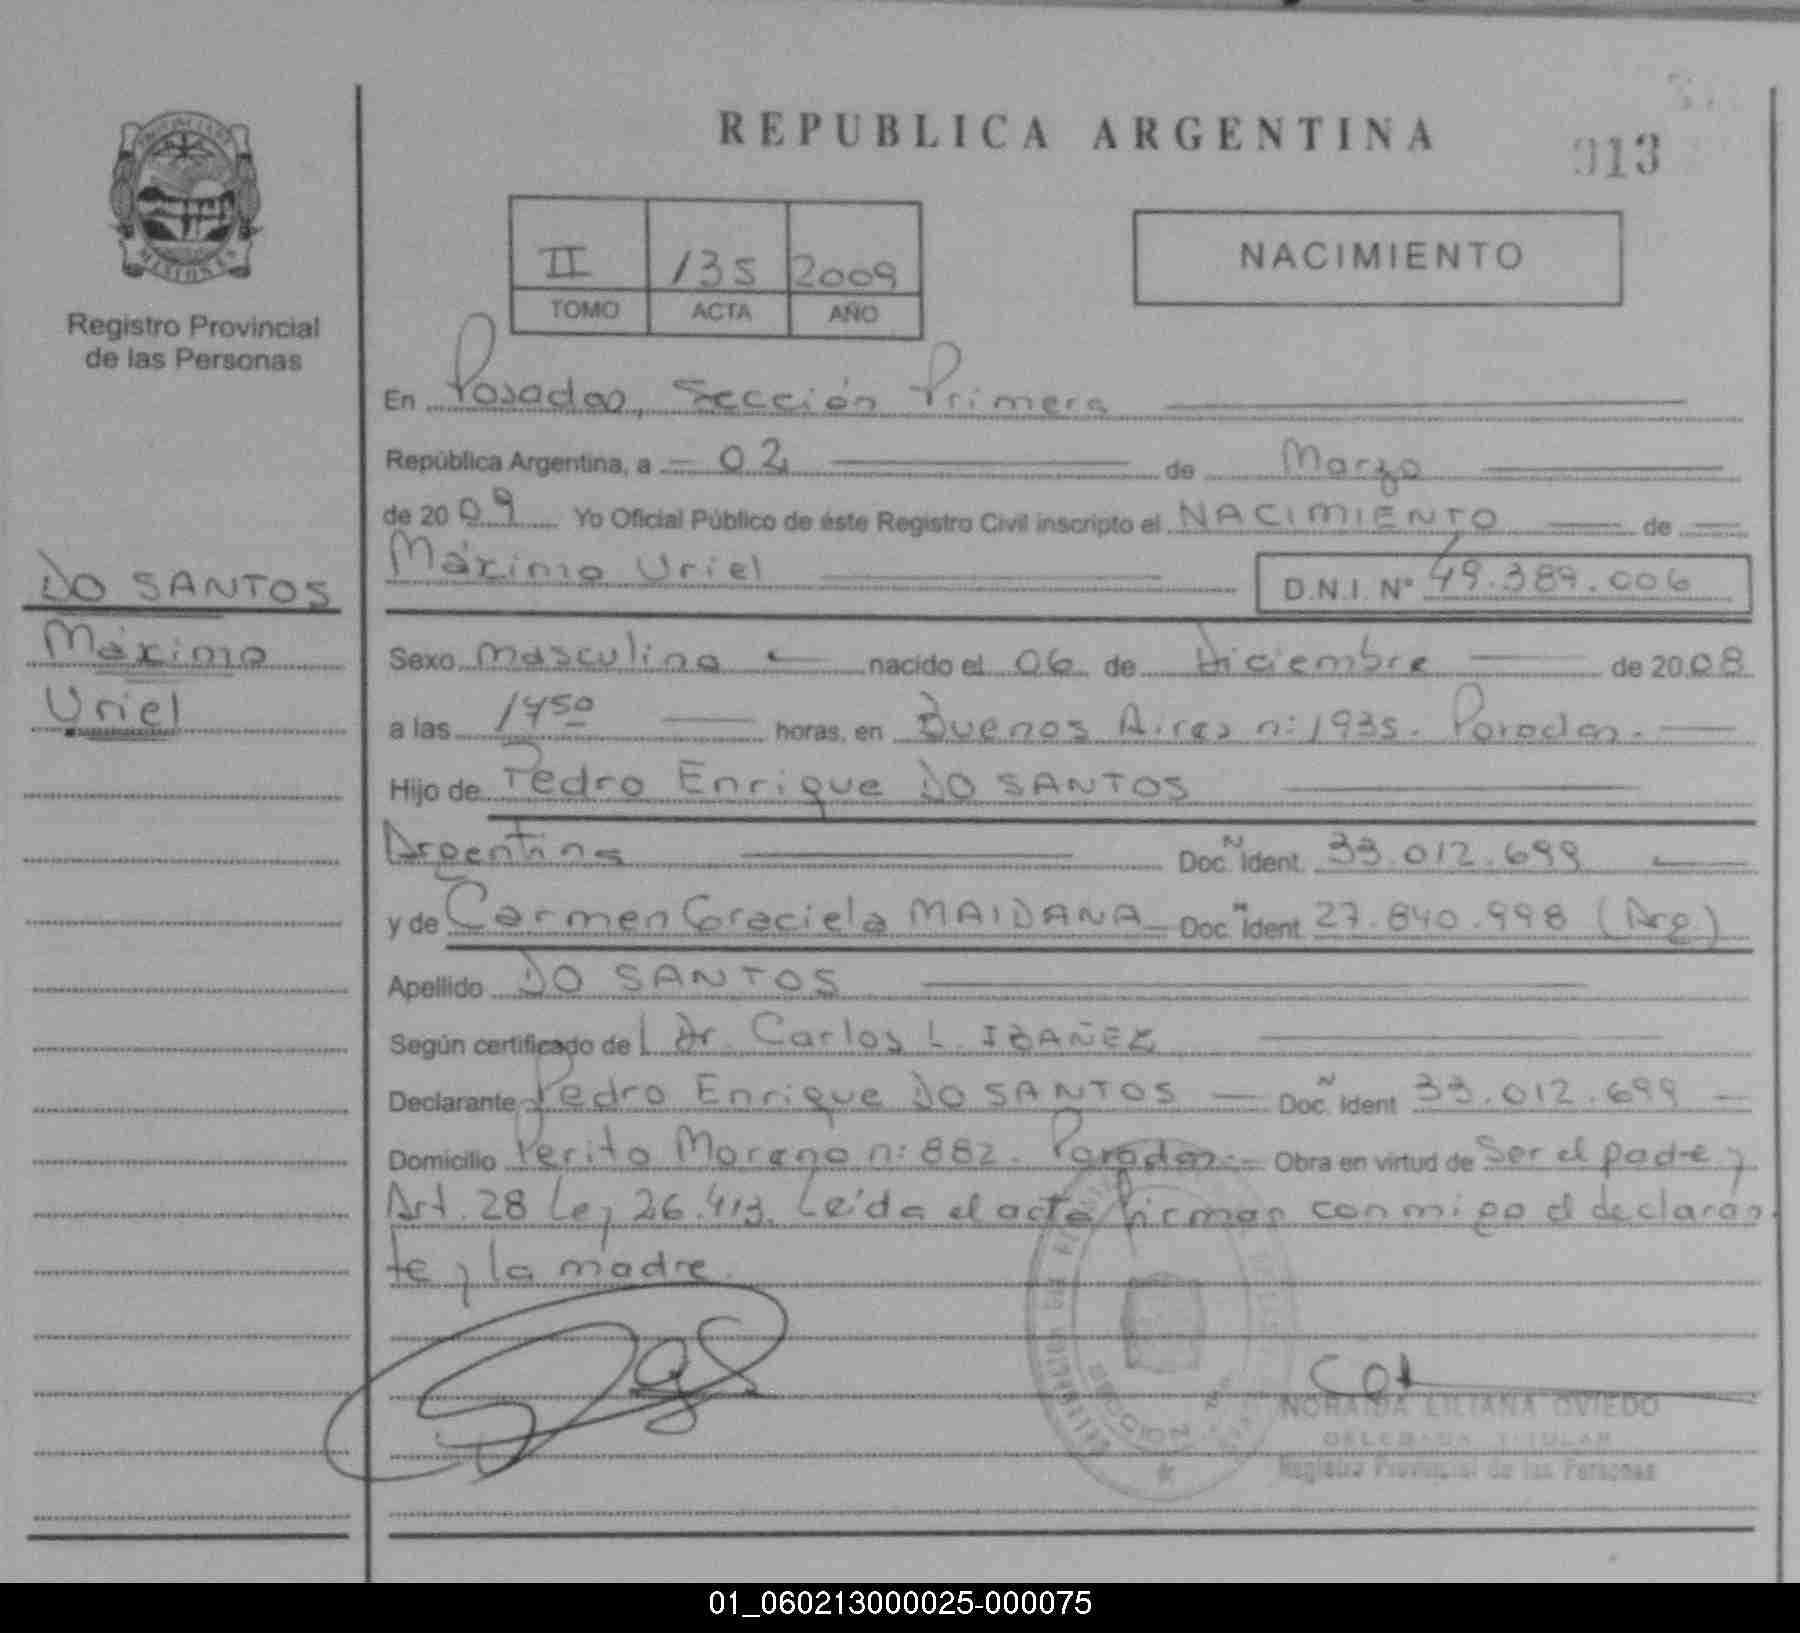 REPUBLICA ARGENTINA
013
PROVINCIA DE
MISIONES
Registro Provincial
de las Personas
II 135 2009
TOMO ACTA AÑO
NACIMIENTO
En Posadas, Sección Primera
República Argentina, a 02 de Marzo
de 2009 Yo Oficial Público de éste Registro Civil inscripto el NACIMIENTO de
Máximo Uriel D.N.I. Nº 49.389.006
DO SANTOS
Máximo
Uriel
Sexo masculino nacido el 06 de Diciembre de 2008
a las 1450 horas, en Buenos Aires n: 1935. Posadas.
Hijo de Pedro Enrique DO SANTOS
Argentina Doc. Ident. 33.012.699
y de Carmen Graciela MAIDANA Doc. Ident 27.840.998 (Arg)
Apellido DO SANTOS
Según certificado de Dr. Carlos L. IBAÑEZ
Declarante Pedro Enrique DO SANTOS Doc. Ident 33.012.699
Domicilio Perito Moreno n: 882. Posadas. Obra en virtud de Ser el padre y
Art. 28 Ley 26.413. Leída el acta firman conmigo el declaran
te y la madre.
NORAIDA LILIANA OVIEDO
DELEGADA TITULAR
Registro Provincial de las Personas
01_060213000025-000075